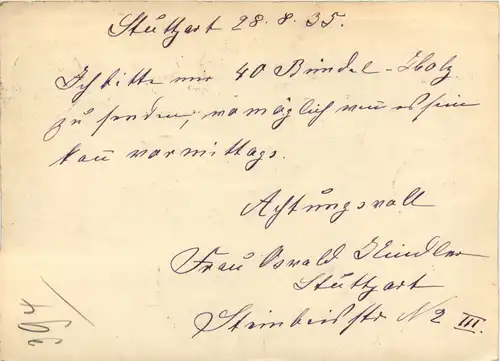 Stuttgart 28.8.35.
Ich bitte mir 40 Bündel-Holz
zu senden, womöglich wen es sein
kan vormittags.
Achtungsvoll
Frau Osvald Kindler
Stuttgart
Steinbeisstr N 2 III.